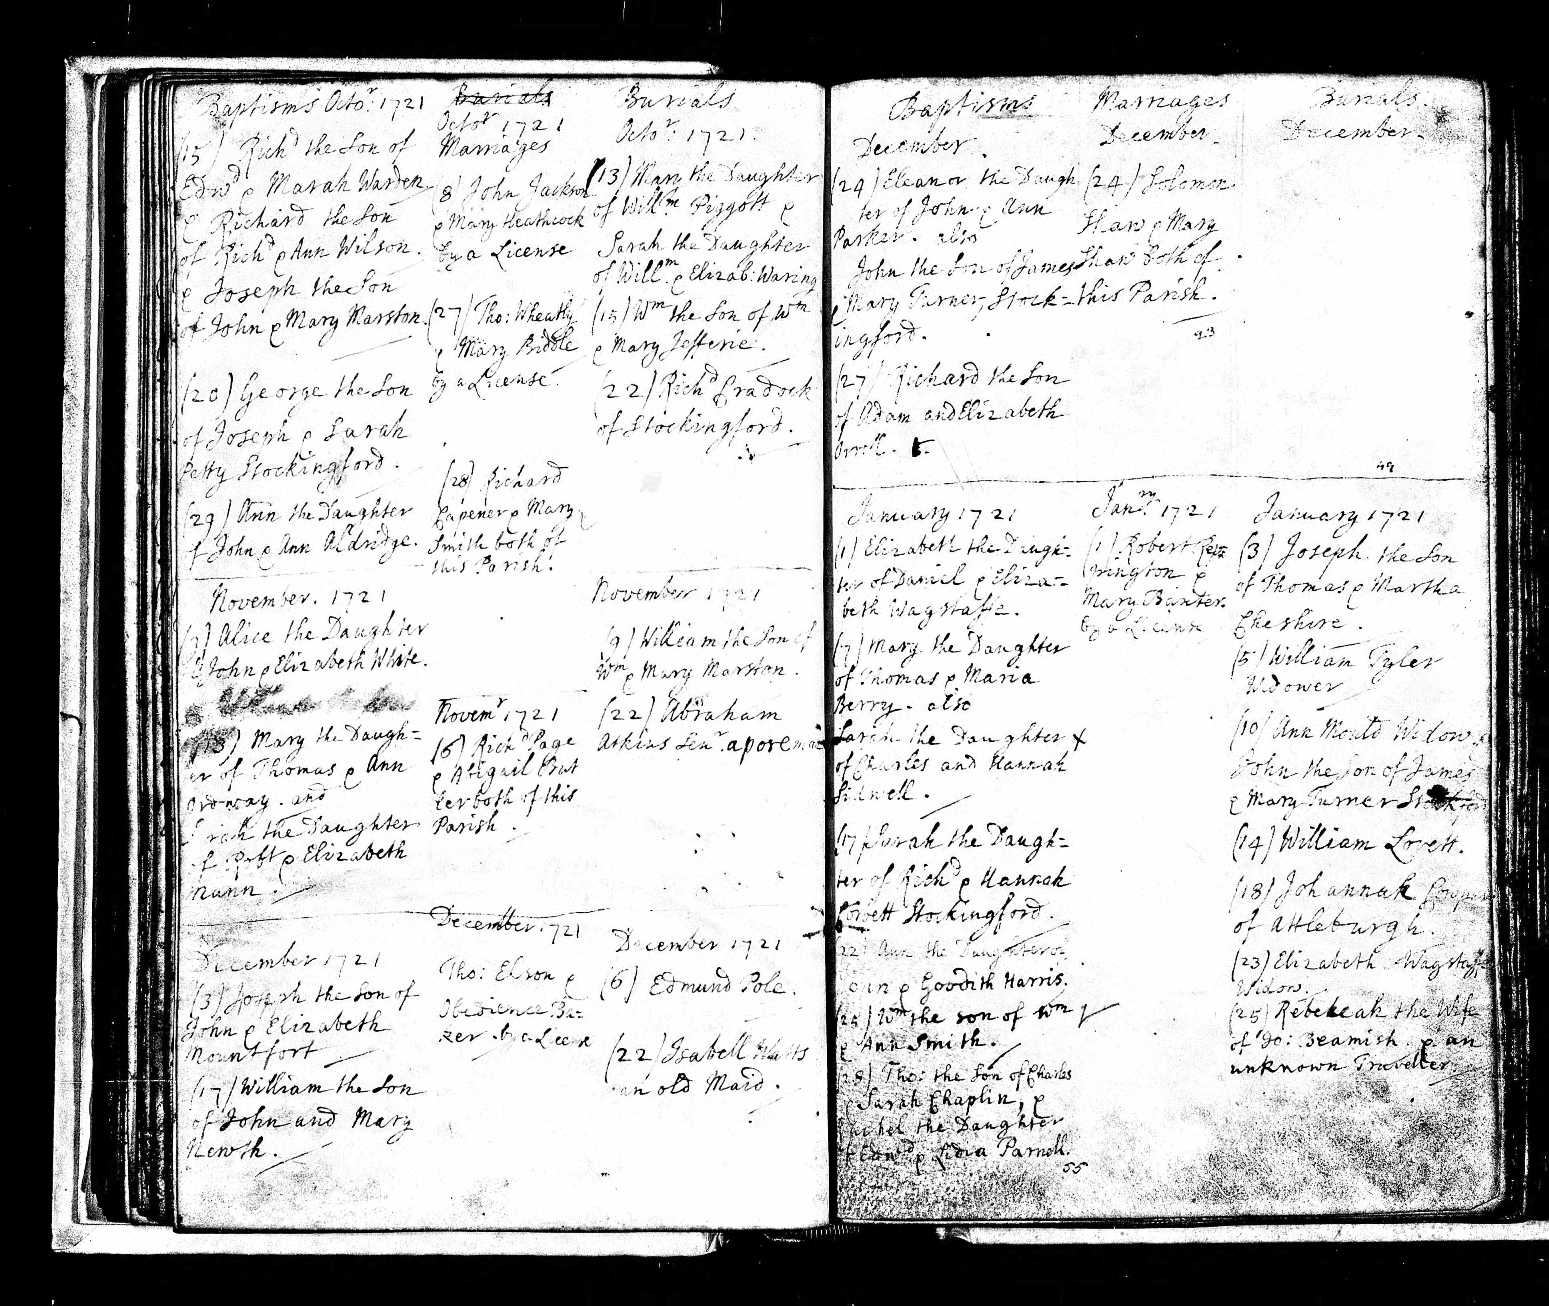 Baptisms Octor: 1721
(15) Richd the Son of
Edwd & Marah Warden
& Richard the Son
of Richd & Ann Wilson.
& Joseph the Son
of John & Mary Marston.
(20) George the Son
of Joseph & Sarah
Petty Stockingford.
(29) Ann the Daughter
of John & Ann Aldridge.
November. 1721
Alice the Daughter
of John & Elizabeth White.
(13) Mary the Daugh=
ter of Thomas & Ann
Ordway. and
Sarah the Daughter
of Robt & Elizabeth
Nann.
December 1721
(3) Joseph the Son of
John & Elizabeth
Mountfort
(17) William the Son
of John and Mary
Newth.
Burials
Octor 1721
Marriages
(8) John Jackson
& Mary Heathcock
by a License
(27) Tho: Wheatly
& Mary Biddle
by a License.
(28) Richard
Capener & Mary
Smith both of
this Parish.
Novemr 1721
(6) Richd Page
& Abigail
ter both of this
Parish.
December. 1721
Tho: Elson &
Obedience Ba=
ker. by a Licen
Burials
Octor: 1721
(13) Mary the Daughter
of Willm Piggott &
Sarah the Daughter
of Willm & Elizab: Waring
(15) Wm the Son of Wm
& Mary Jefferie.
(22) Richd Cradock
of Stockingford.
November 1721
(9) William the Son of
Wm & Mary Marston.
(22) Abraham
Atkins Senr. a pore man
December 1721
(6) Edmund Pole.
(22) Isabell Watts
an old Maid.
Baptisms
December.
(24) Eleanor the Daugh
ter of John & Ann
Parker. also
John the Son of James
& Mary Turner, Stock=
ingford.
(27) Richard the Son
of Adam and Elizabeth
Orrell.
January 1721
(1) Elizabeth the Daugh=
ter of Daniel & Eliza=
beth Wagstaffe.
(7) Mary the Daughter
of Thomas & Maria
Berry. also
Sarah the Daughter x
of Charles and Hannah
Sidwell.
(17) Sarah the Daugh=
ter of Richd & Hannah
Lovett Stockingford.
(22) Ann the Daughter of
John & Goodith Harris.
(25) Wm the son of Wm
& Ann Smith.
(28) Tho: the Son of Charles
& Sarah Chaplin, &
Rachel the Daughter
of Edwd & Lidia Parnell.
55
Marriages
December.
(24) Solomon
Shaw & Mary
Shaw both of
this Parish.
93
Janry 1721
(1) Robert
& Mary Baxter.
by a License
Burials.
December.
49
January 1721
(3) Joseph the Son
of Thomas & Martha
Cheshire.
(5) William Tyler
Widower
(10) Ann Mould Widow &
John the Son of James
& Mary Turner
(14) William Lovett.
(18) Johannah Cooper
of Attleburgh.
(23) Elizabeth Wagstaffe
Widow.
(25) Rebekeah the Wife
of Jo: Beamish. & an
unknown Traveller